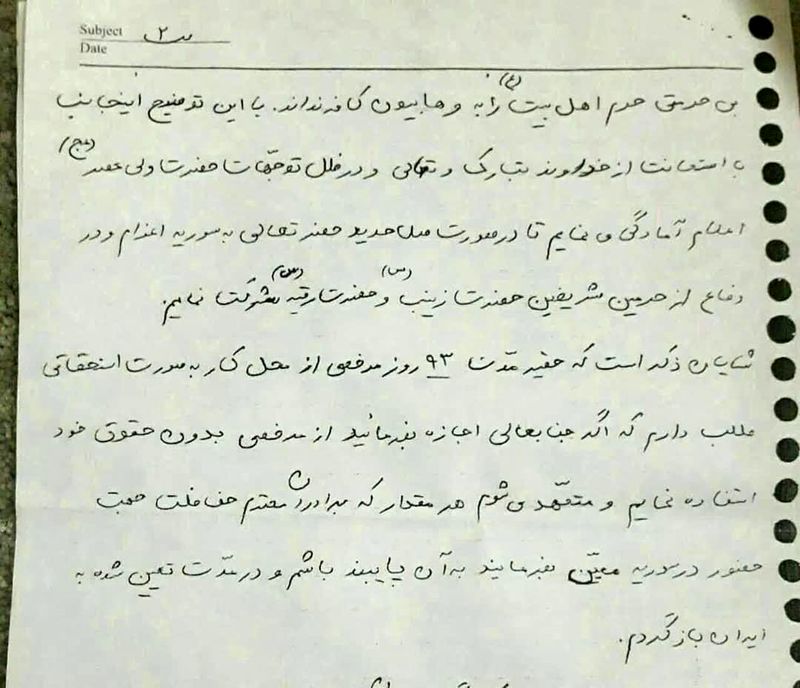 Subject ص ۲
Date
بی حرمتی حرم اهل بیت (ع) را به وهابیون کافر نداند. با این توضیح اینجانب
با استعانت از خداوند تبارک و تعالی و در ظلل توجّهات حضرت ولی عصر (عج)
اعلام آمادگی می نمایم تا در صورت صلاحدید حضرتعالی به سوریه اعزام و در
دفاع از حرمین شریفین حضرت زینب (س) و حضرت رقیه (س) شرکت نمایم.
شایان ذکر است که حقیر مدّت ۹۳ روز مرخصی از محل کار به صورت استحقاقی
طلب دارم که اگر جنابعالی اجازه بفرمائید از مرخصی بدون حقوق خود
استفاده نمایم و متعهّد می شوم هر مقدار که برادران محترم حفاظت جهت
حضور در سوریه معیّن بفرمایند به آن پایبند باشم و در مدّت تعیین شده به
ایران بازگردم.